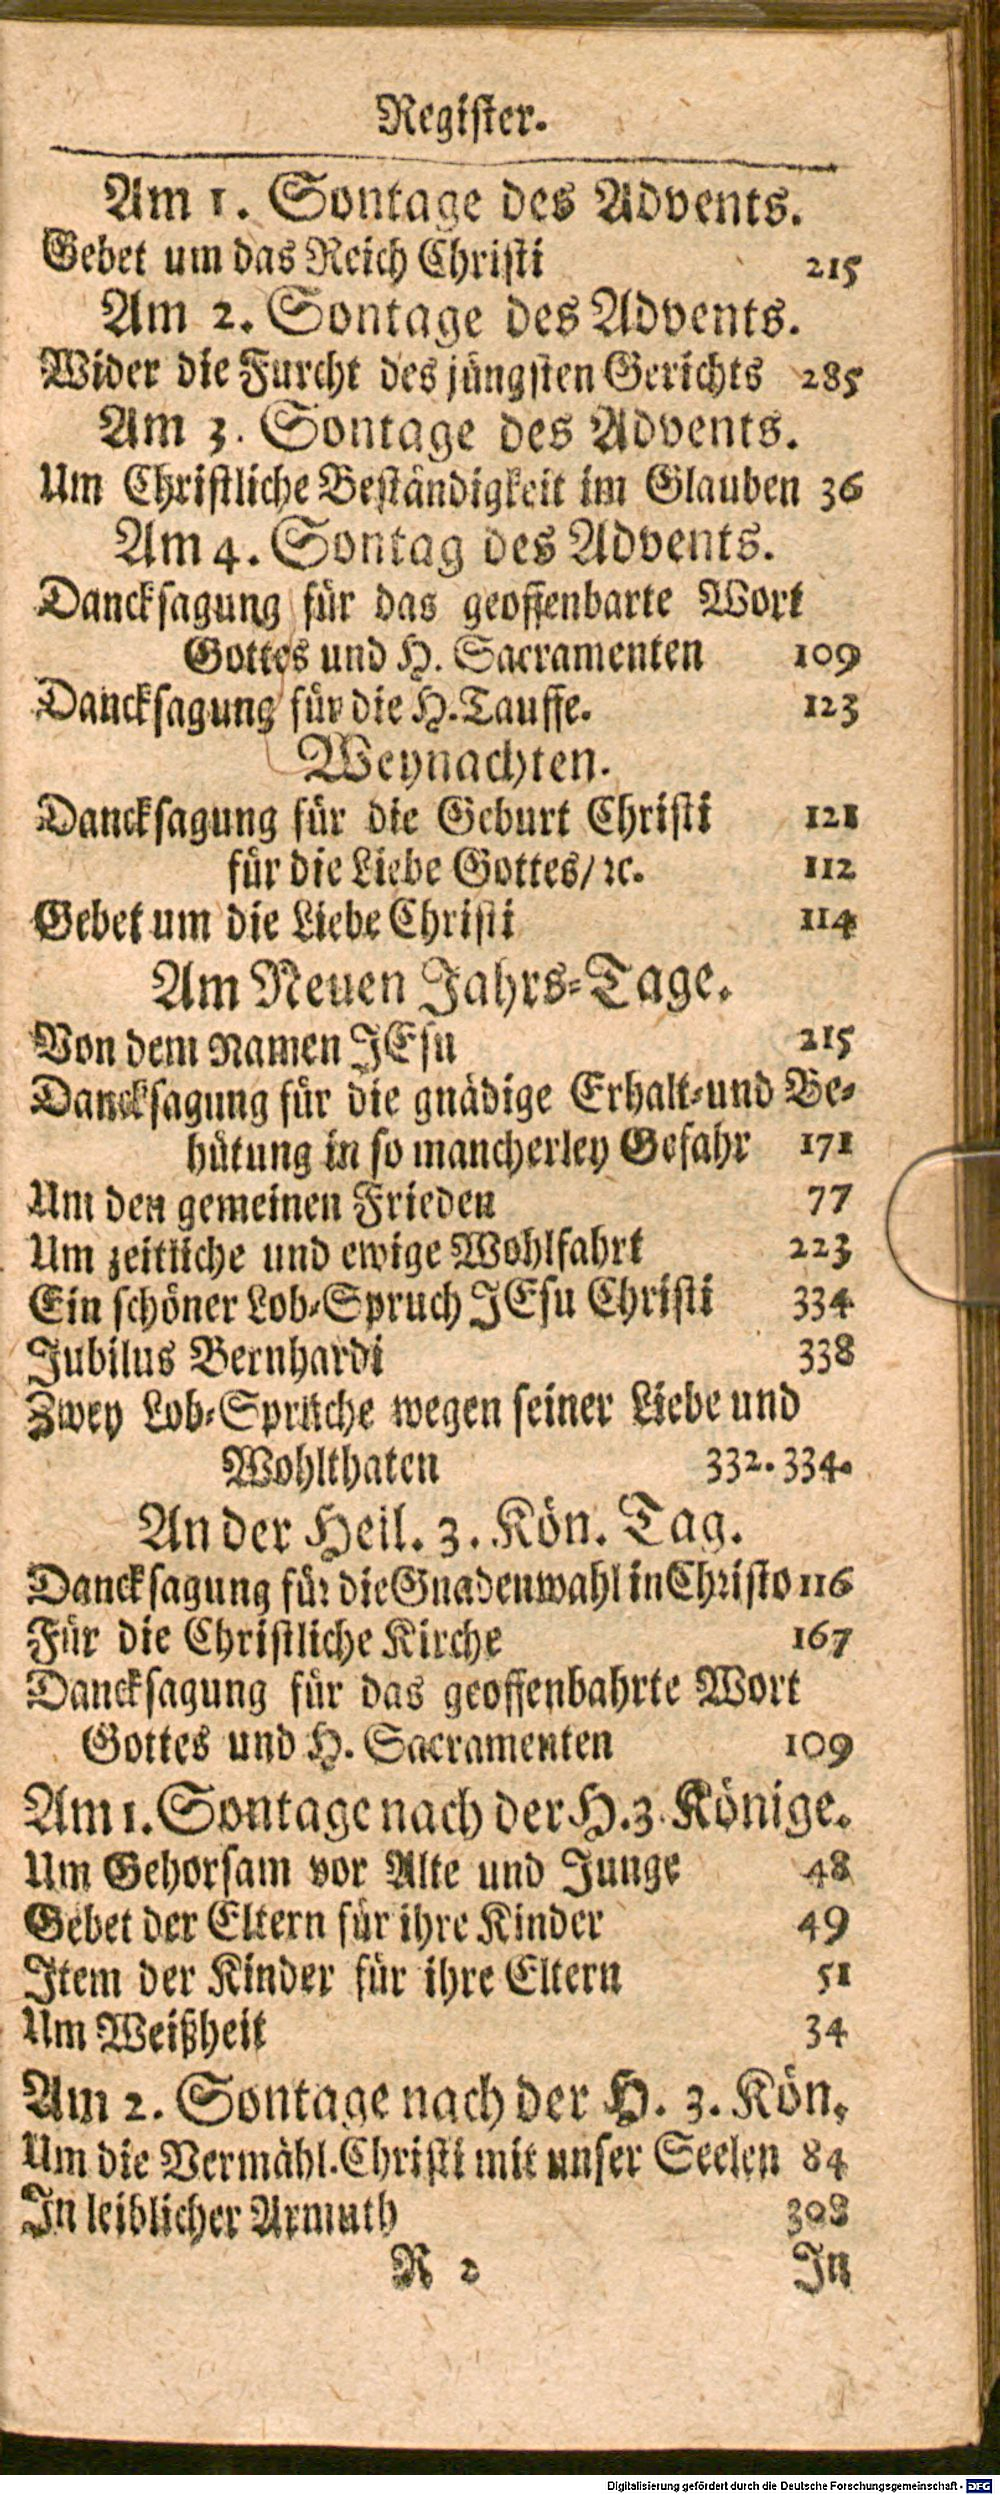 Register.
Am 1. Sontage des Advents.
Gebet um das Reich Christi 215
Am 2. Sontage des Advents.
Wider die Furcht des jüngsten Gerichts 285
Am 3. Sontage des Advents.
Um Christliche Beständigkeit im Glauben 36
Am 4. Sontag des Advents.
Dancksagung für das geoffenbarte Wort
Gottes und H. Sacramenten 109
Dancksagung für die H. Tauffe. 123
Weynachten.
Dancksagung für die Geburt Christi 121
für die Liebe Gottes/ ꝛc. 112
Gebet um die Liebe Christi 114
Am Neuen Jahrs-Tage.
Von dem Namen JEsu 215
Dancksagung für die gnädige Erhalt-und Be-
hütung in so mancherley Gefahr 171
Um den gemeinen Frieden 77
Um zeitliche und ewige Wohlfahrt 223
Ein schöner Lob-Spruch JEsu Christi 334
Jubilus Bernhardi 338
Zwey Lob-Sprüche wegen seiner Liebe und
Wohlthaten 332. 334.
An der Heil. 3. Kön. Tag.
Dancksagung für die Gnadenwahl in Christo 116
Für die Christliche Kirche 167
Dancksagung für das geoffenbahrte Wort
Gottes und H. Sacramenten 109
Am 1. Sontage nach der H. 3. Könige.
Um Gehorsam vor Alte und Junge 48
Gebet der Eltern für ihre Kinder 49
Item der Kinder für ihre Eltern 51
Um Weißheit 34
Am 2. Sontage nach der H. 3. Kön.
Um die Vermähl. Christi mit unser Seelen 84
In leiblicher Armuth 308
R 2 In
Digitalisierung gefördert durch die Deutsche Forschungsgemeinschaft - DFG